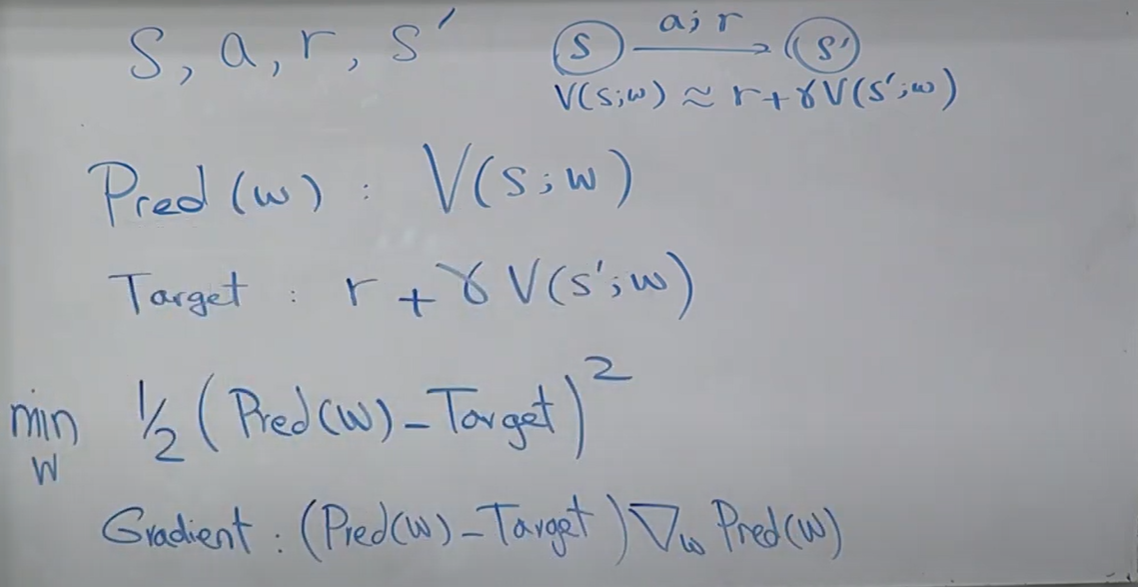 S, a, r, s'
S a; r s'
V(s;w) ≈ r+γV(s';w)
Pred (w) : V(s;w)
Target : r + γ V(s';w)
min 1/2 (Pred(w)-Target)²
w
Gradient : (Pred(w)-Target)∇w Pred(w)